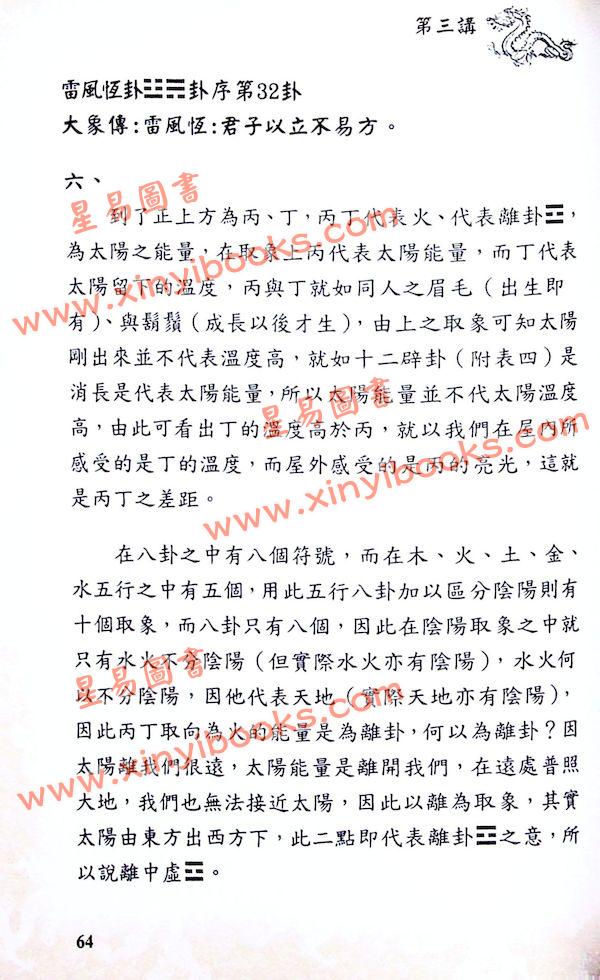 第三講
雷風恆卦☳☴卦序第32卦
大象傳:雷風恆:君子以立不易方。
六、
到了正上方為丙、丁,丙丁代表火、代表離卦☲,
為太陽之能量,在取象上丙代表太陽能量,而丁代表
太陽留下的溫度,丙與丁就如同人之眉毛(出生即
有)、與鬍鬚(成長以後才生),由上之取象可知太陽
剛出來並不代表溫度高,就如十二辟卦(附表四)是
消長是代表太陽能量,所以太陽能量並不代太陽溫度
高,由此可看出丁的溫度高於丙,就以我們在屋內所
感受的是丁的溫度,而屋外感受的是丙的亮光,這就
是丙丁之差距。
在八卦之中有八個符號,而在木、火、土、金、
水五行之中有五個,用此五行八卦加以區分陰陽則有
十個取象,而八卦只有八個,因此在陰陽取象之中就
只有水火不分陰陽(但實際水火亦有陰陽),水火何
以不分陰陽,因他代表天地(實際天地亦有陰陽),
因此丙丁取向為火的能量是為離卦,何以為離卦?因
太陽離我們很遠,太陽能量是離開我們,在遠處普照
大地,我們也無法接近太陽,因此以離為取象,其實
太陽由東方出西方下,此二點即代表離卦☲之意,所
以說離中虛☲。
64
星易圖書
www.xinyibooks.com
星易圖書
www.xinyibooks.com
星易圖書
www.xinyibooks.com